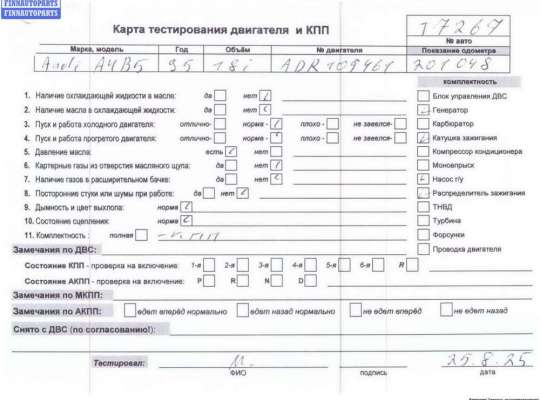 FINNAUTOPARTS
FINNAUTOPARTS
Карта тестирования двигателя и КПП
17267
№ авто
Марка, модель Год Объём № двигателя Показание одометра
Audi A4B5 95 1.8i ADR109461 201048
комплектность
1. Наличие охлаждающей жидкости в масле: да нет
Блок управления ДВС
2. Наличие масла в охлаждающей жидкости: да нет
Генератор
3. Пуск и работа холодного двигателя: отлично- норма - плохо - не завелся-
Карбюратор
4. Пуск и работа прогретого двигателя: отлично- норма - плохо - не завелся-
Катушка зажигания
5. Давление масла: есть нет
Компрессор кондиционера
6. Картерные газы из отверстия масляного щупа: да нет
Моновпрыск
7. Наличие газов в расширительном бачке: да нет
Насос г/у
8. Посторонние стуки или шумы при работе: да нет
Распределитель зажигания
9. Дымность и цвет выхлопа: норма
ТНВД
10. Состояние сцепления: норма
Турбина
11. Комплектность : полная
Форсунки
Замечания по ДВС:
Проводка двигателя
Состояние КПП - проверка на включение: 1-я 2-я 3-я 4-я 5-я 6-я R
Состояние АКПП - проверка на включение: P R N D
Замечания по МКПП:
Замечания по АКПП: едет вперёд нормально едет назад нормально не едет вперёд не едет назад
Снято с ДВС (по согласованию!):
Тестировал: 25.8.25
ФИО подпись дата